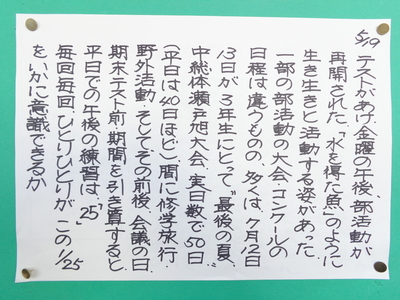 5/19
テストがあけ、金曜の午後、部活動が
再開された。「水を得た魚」のように
生き生きと活動する姿があった。
一部の部活動の大会・コンクールの
日程は違うものの、多くは、7月12日
13日が3年生にとって“最後の夏、
中総体瀬戸旭大会、実日数で50日
(平日は40日ほど)、間に修学旅行・
野外活動・そしてその前後、会議の日、
期末テスト前期間を引き算すると
平日での午後の練習は“25”
毎回毎回、ひとりひとりが、この1/25
をいかに意識できるか